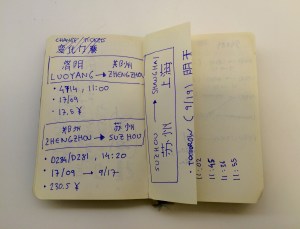 洛阳 郑州
LUOYANG → ZHENGZHOU
• 4714, 11:00
• 17/09
• 17,5 ¥
郑州 苏州
ZHENGZHOU → SUZHOU
• D284/D281, 14:20
• 17/09 → 9/17
• 230.5 ¥
SUZHOU → SHANGHAI
苏州 上海
• TOMORROW (9/19) 明天
11:02
11:45
11:36
11:55